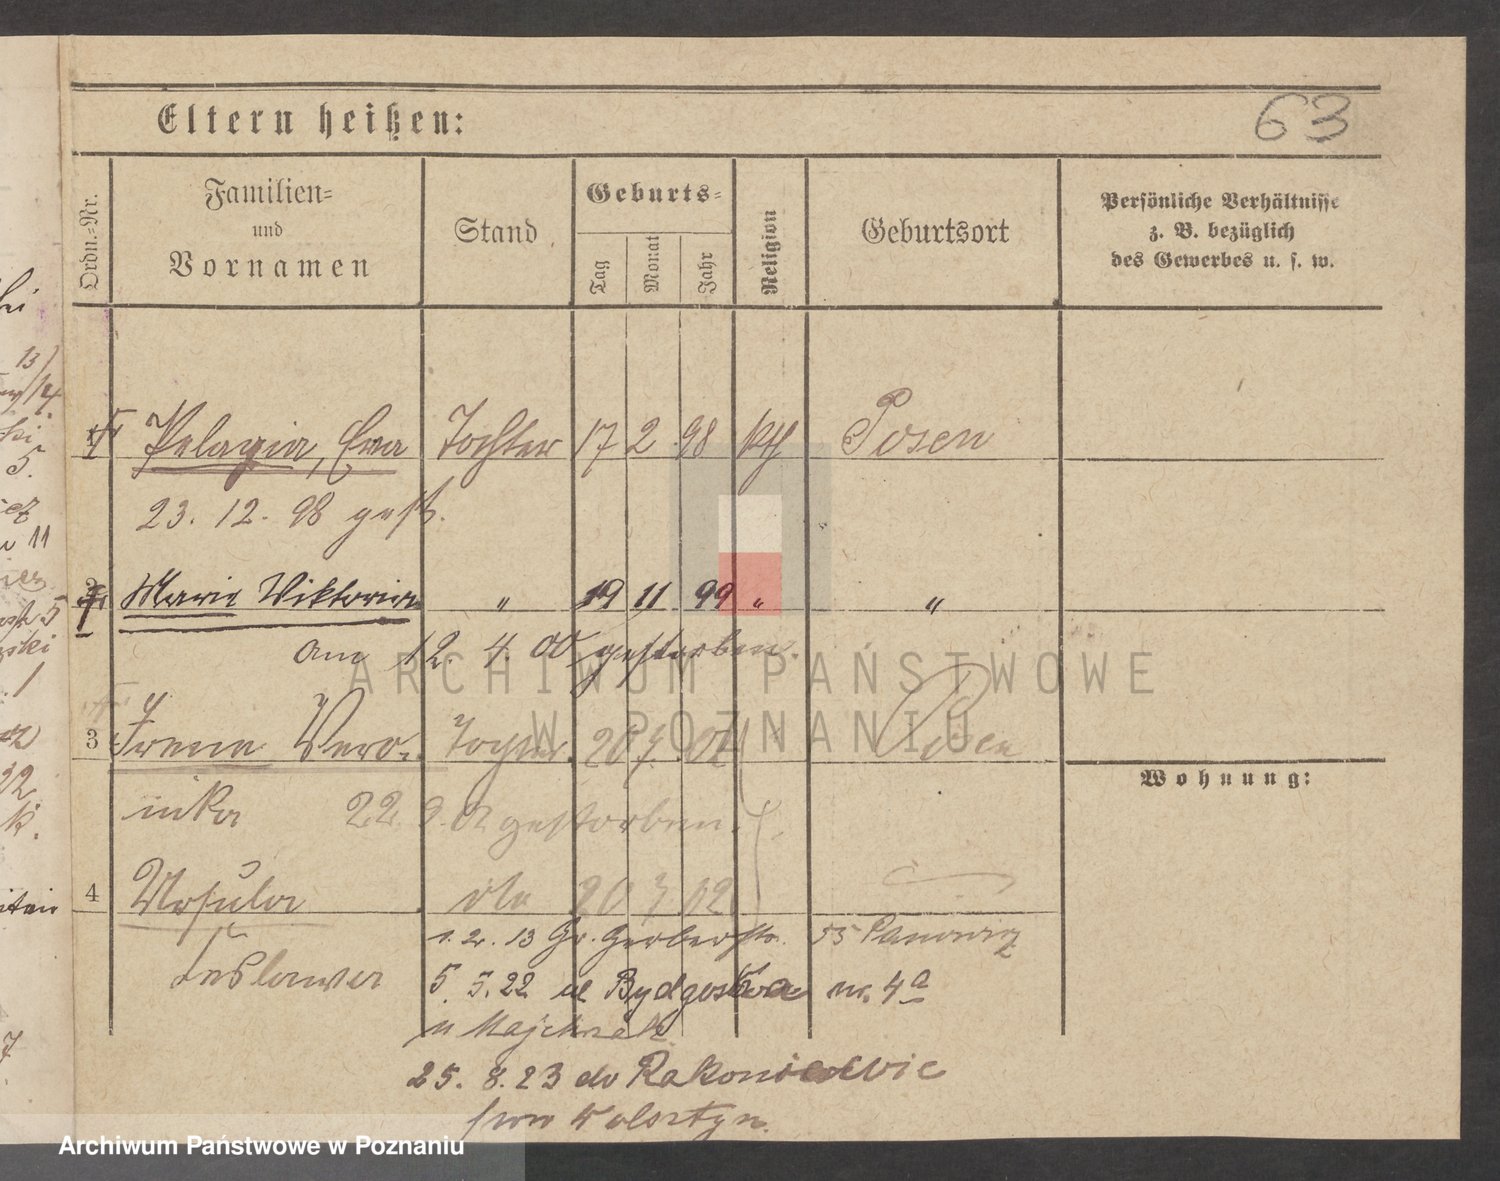 63
Eltern heißen:
Ordn.-Nr.
Familien-
und
Vornamen
Stand
Geburts-
Tag
Monat
Jahr
Religion
Geburtsort
Persönliche Verhältnisse
z. B. bezüglich
des Gewerbes u. s. w.
1 Pelagia, Eva Tochter 17 2 98 kth Posen
23. 12. 98 gest.
2 Marie Viktoria " 19 11 99 " "
am 12. 4. 00 gestorben.
3 Irene Vero- Tochter 20 7. 01 Posen
Wohnung:
nika 22. 9. 01 gestorben.
4 Ursula dto 20 7 02
1. 2. 13 Gr. Gerberstr. 55
Leslawa
5. 5. 22 ul Bydgoska nr. 4a
u Majchrzak
25. 8. 23 do Rakoniewic
pow Wolsztyn.
ARCHIWUM PAŃSTWOWE
W POZNANIU
Archiwum Państwowe w Poznaniu